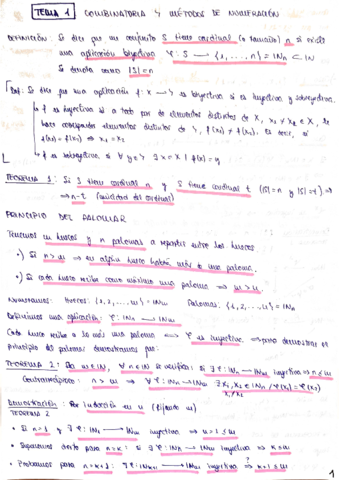 TEMA 1 COMBINATORIA Y MÉTODOS DE NUMERACIÓN
DEFINICIÓN: Se dice que un conjunto S tiene cardinal (o tamaño) n si existe
una aplicación biyectiva φ: S → {1, 2, ..., n} = INn ⊂ IN
Se denota como |S| = n
Def: Se dice que una aplicación f: X → Y es biyectiva si es inyectiva y sobreyectiva.
• f es inyectiva si a todo par de elementos distintos de X, x1 ≠ x2 ∈ X, le
hace corresponder elementos distintos de Y, f(x1) ≠ f(x2). Es decir, si
f(x1) = f(x2) ⇒ x1 = x2
• f es sobreyectiva, si ∀ y ∈ Y ∃ x ∈ X | f(x) = y
TEOREMA 1: Si S tiene cardinal n y S tiene cardinal t (|S| = n y |S| = t) ⇒
⇒ n = t (unicidad del cardinal)
PRINCIPIO DEL PALOMAR
Tenemos m huecos y n palomas a repartir entre los huecos
•) Si n > m ⇒ en algún hueco habrá más de una paloma.
•) Si cada hueco recibe como máximo una paloma ⇒ m ≥ n.
Numeramos: Huecos: {1, 2, ..., m} = INm Palomas: {1, 2, ..., n} = INn
Definimos una aplicación: φ: INn → INm
Cada hueco recibe a lo más una paloma ⇔ φ es inyectiva ⇒ para demostrar el
principio del palomar demostramos que:
TEOREMA 2: m ∈ IN, ∀ n ∈ IN se verifica: si ∃ φ: INn → INm inyectiva ⇒ n ≤ m
Contrarrecíproco: n > m ⇒ ∀ φ: INn → INm ∃ x1, x2 ∈ INn / φ(x1) = φ(x2)
x1 ≠ x2
Demostración: Por inducción en n (fijado m)
TEOREMA 2
• Si n = 1 y ∃ φ: IN1 → INm inyectiva ⇒ n = 1 ≤ m
• Suponemos cierto para n = k: si ∃ φ: INk → INm inyectiva ⇒ k ≤ m
• Probamos para n = k+1: ∃ φ: INk+1 → INm inyectiva ⇒? k+1 ≤ m
1